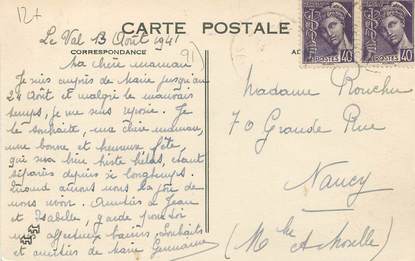 12+
CARTE POSTALE
Le Val 13 Août 1941
CORRESPONDANCE
Ma chère maman
Je suis auprès de Marie jusqu'au
24 Août et malgré le mauvais
temps, je me suis reposée. Je
te souhaite, ma chère maman,
une bonne et heureuse fête,
qui sera bien triste hélas, étant
séparés depuis si longtemps.
Quand aurons nous la joie de
nous revoir. Amitiés à Jean
et Isabelle, garde pour toi
mes affectueux baisers. Souhaits
et amitiés de Marie Germaine
Madame Rouche
70 Grande Rue
Nancy
(Mthe et Moselle)
POSTES 40
POSTES 40